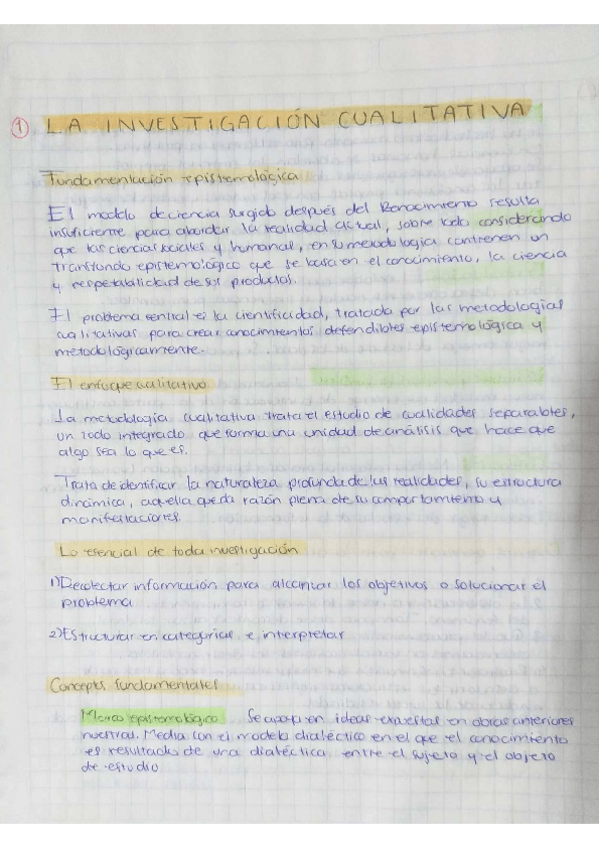 ① LA INVESTIGACIÓN CUALITATIVA
Fundamentación epistemológica
El modelo de ciencia surgido después del Renacimiento resulta
insuficiente para abordar la realidad actual, sobre todo considerando
que las ciencias sociales y humanas, en su metodología contienen un
transfondo epistemológico que se basa en el conocimiento, la ciencia
y respetabilidad de sus productos.
El problema central es la cientificidad, tratada por las metodologías
cualitativas para crear conocimientos defendibles epistemológica y
metodológicamente.
El enfoque cualitativo
La metodología cualitativa trata el estudio de cualidades separables,
un todo integrado que forma una unidad de análisis que hace que
algo sea lo que es.
Trata de identificar la naturaleza profunda de las realidades, su estructura
dinámica, aquella que da razón plena de su comportamiento y
manifestaciones.
Lo esencial de toda investigación
1) Recolectar información para alcanzar los objetivos o solucionar el
problema
2) Estructurar en categorías e interpretar
Concepts fundamentales
Marco epistemológico Se apoya en ideas expuestas en obras anteriores
nuestras. Media con el modelo dialéctico en el que el conocimiento
es resultado de una dialéctica entre el sujeto y el objeto
de estudio